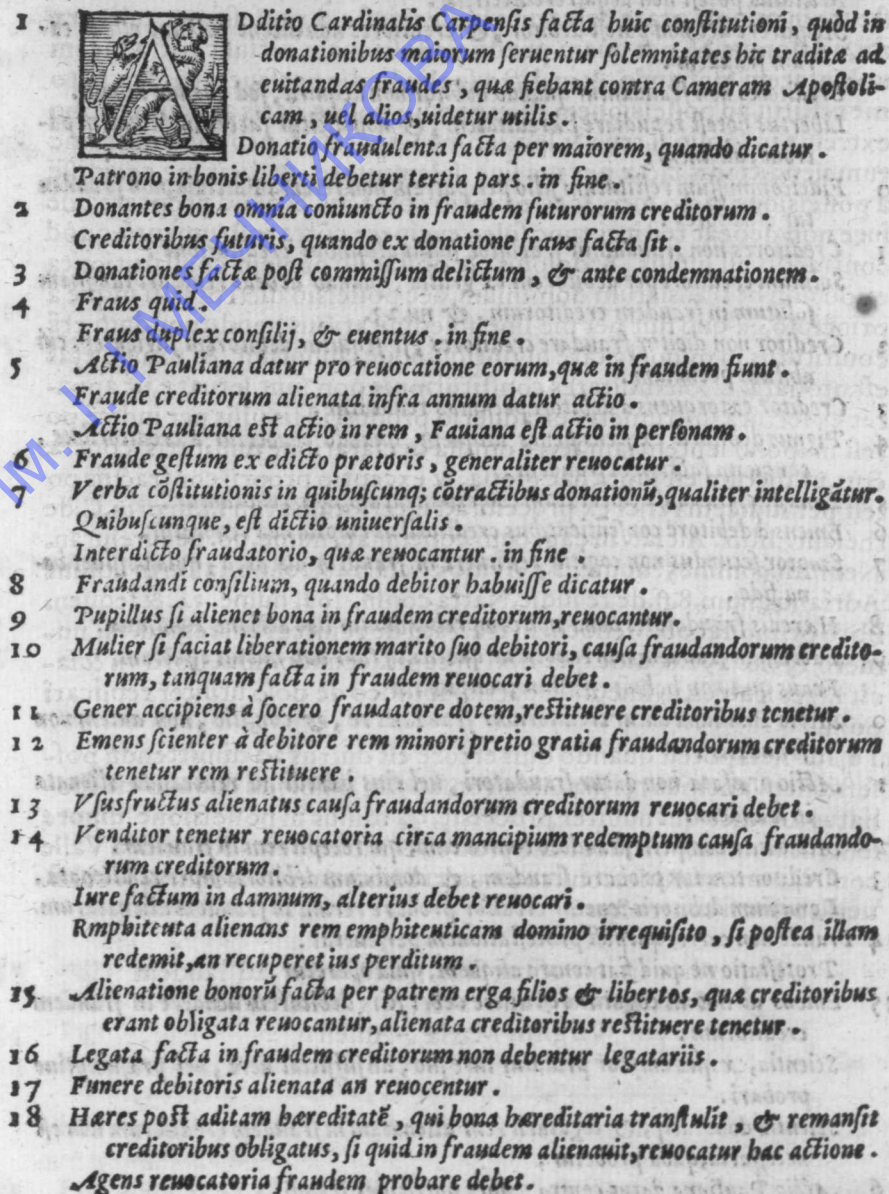 1 ADditio Cardinalis Carpensis facta huic constitutioni, quòd in
donationibus maiorum seruentur solemnitates hic traditæ ad
euitandas fraudes, quæ fiebant contra Cameram Apostoli-
cam, uel alios, uidetur utilis.
Donatio fraudulenta facta per maiorem, quando dicatur.
Patrono in bonis liberti debetur tertia pars. in fine.
2 Donantes bona omnia coniuncto in fraudem futurorum creditorum.
Creditoribus futuris, quando ex donatione fraus facta sit.
3 Donationes factæ post commissum delictum, & ante condemnationem.
4 Fraus quid.
Fraus duplex consilij, & euentus. in fine.
5 Actio Pauliana datur pro reuocatione eorum, quæ in fraudem fiunt.
Fraude creditorum alienata infra annum datur actio.
Actio Pauliana est actio in rem, Fauiana est actio in personam.
6 Fraude gestum ex edicto prætoris, generaliter reuocatur.
7 Verba cõstitutionis in quibuscunq; cõtractibus donationũ, qualiter intelligãtur.
Quibuscunque, est dictio uniuersalis.
Interdicto fraudatorio, quæ reuocantur. in fine.
8 Fraudandi consilium, quando debitor habuisse dicatur.
9 Pupillus si alienet bona in fraudem creditorum, reuocantur.
10 Mulier si faciat liberationem marito suo debitori, causa fraudandorum credito-
rum, tanquam facta in fraudem reuocari debet.
11 Gener accipiens à socero fraudatore dotem, restituere creditoribus tenetur.
12 Emens scienter à debitore rem minori pretio gratia fraudandorum creditorum
tenetur rem restituere.
13 Vsusfructus alienatus causa fraudandorum creditorum reuocari debet.
14 Venditor tenetur reuocatoria circa mancipium redemptum causa fraudando-
rum creditorum.
Iure factum in damnum, alterius debet reuocari.
Rmphiteuta alienans rem emphiteuticam domino irrequisito, si postea illam
redemit, an recuperet ius perditum.
15 Alienatione bonorũ facta per patrem erga filios & libertos, quæ creditoribus
erant obligata reuocantur, alienata creditoribus restituere tenetur.
16 Legata facta in fraudem creditorum non debentur legatariis.
17 Funere debitoris alienata an reuocentur.
18 Hæres post aditam hæreditatẽ, qui bona hæreditaria transtulit, & remansit
creditoribus obligatus, si quid in fraudem alienauit, reuocatur hac actione.
Agens reuocatoria fraudem probare debet.
ІМ. І. І МЕЧНИКОВА